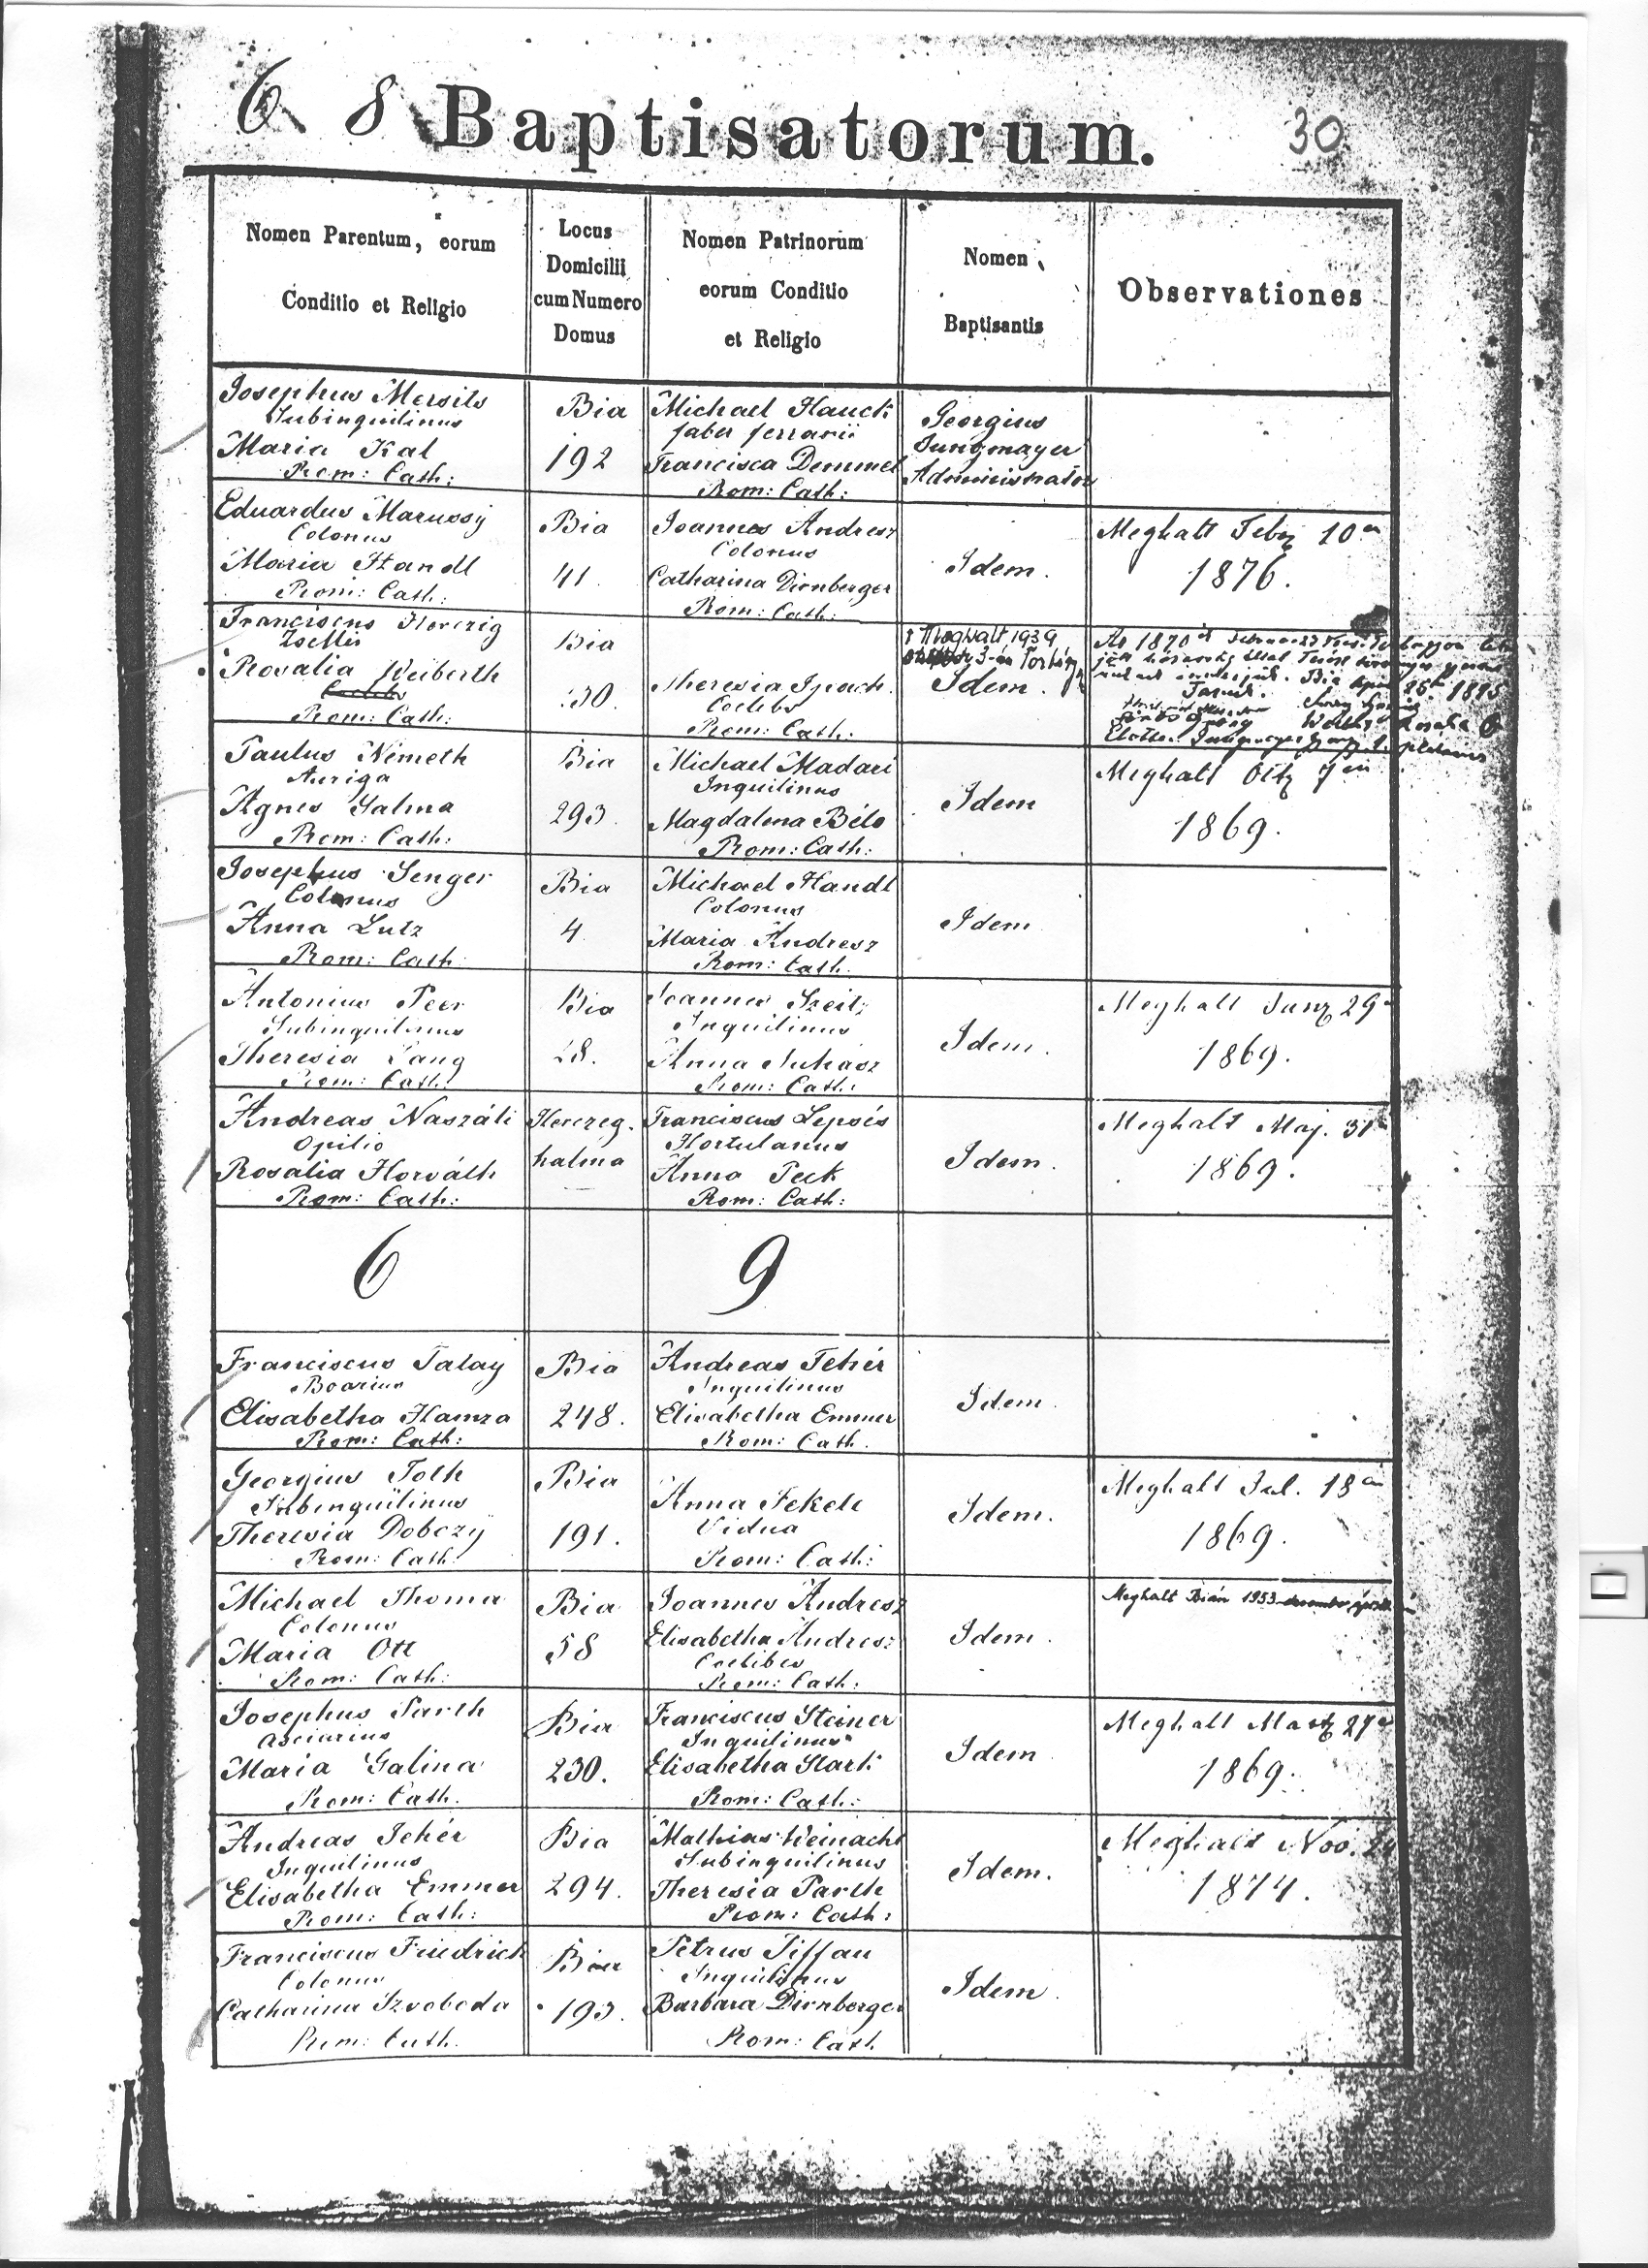 6 8 Baptisatorum. 30
Nomen Parentum, eorum
Conditio et Religio
Locus
Domicilii
cum Numero
Domus
Nomen Patrinorum
eorum Conditio
et Religio
Nomen
Baptisantis
Observationes
Josephus Mersits
Subinquilinus
Maria Kal
Rom: Cath:
Bia
192
Michael Hauck
faber ferrarii
Francisca Demmel
Rom: Cath:
Georgius
Jungmayer
Administrator
Eduardus Marussÿ
Colonus
Maria Handl
Rom: Cath:
Bia
41.
Joannes Andresz
Colonus
Catharina Dirnberger
Rom: Cath:
Idem.
Meghalt Feb 10
1876.
Franciscus Herczig
Zsellér
Rosalia Weiberth
Rom: Cath:
Bia
30.
Theresia
Coelebs
Rom: Cath:
† Meghalt 1939
3-án
Idem.
1870
Bia 25 1895
Tanuk.
Előttem Jungmayer
Paulus Németh
Auriga
Agnes Galma
Rom: Cath:
Bia
293.
Michael Madari
Inquilinus
Magdalena Béls
Rom: Cath:
Idem
Meghalt
1869.
Josephus Senger
Colonus
Anna Lutz
Rom: Cath:
Bia
4
Michael Handl
Colonus
Maria Andresz
Rom: Cath.
Idem
Antonius Peer
Subinquilinus
Theresia Lang
Rom: Cath:
Bia
28.
Joannes Szeitz
Inquilinus
Anna Juhasz
Rom: Cath:
Idem.
Meghalt 29
1869.
Andreas Naszáli
Opilio
Rosalia Horváth
Rom: Cath:
Herczeg-
halma
Franciscus Lepsés
Hortulanus
Anna Peck
Rom: Cath:
Idem.
Meghalt Maj. 31
1869.
6 9
Franciscus Talay
Boarius
Elisabetha Hamza
Rom: Cath:
Bia
248.
Andreas Fehér
Inquilinus
Elisabetha Emmer
Rom: Cath.
Idem
Georgius Toth
Subinquilinus
Theresia Dobczÿ
Rom: Cath
Bia
191.
Anna Fekete
Vidua
Rom: Cath:
Idem.
Meghalt Jul. 18
1869.
Michael Thoma
Colonus
Maria Ott
Rom: Cath:
Bia
58
Joannes Andresz
Elisabetha Andresz
Coelibes
Rom: Cath:
Idem.
Meghalt Bián 1953
Josephus Parth
Asciarius
Maria Galina
Rom: Cath.
Bia
230.
Franciscus Steiner
Inquilinus
Elisabetha Stark
Rom: Cath:
Idem
Meghalt 27
1869.
Andreas Fehér
Inquilinus
Elisabetha Emmer
Rom: Cath:
Bia
294.
Mathias Weinacht
Subinquilinus
Theresia Parth
Rom: Cath:
Idem.
Meghalt Nov. 24
1874.
Franciscus Friedrich
Colonus
Catharina Szvoboda
Rom: Cath.
Bia
193.
Petrus Tiffau
Inquilinus
Barbara Dirnberger
Rom: Cath
Idem.